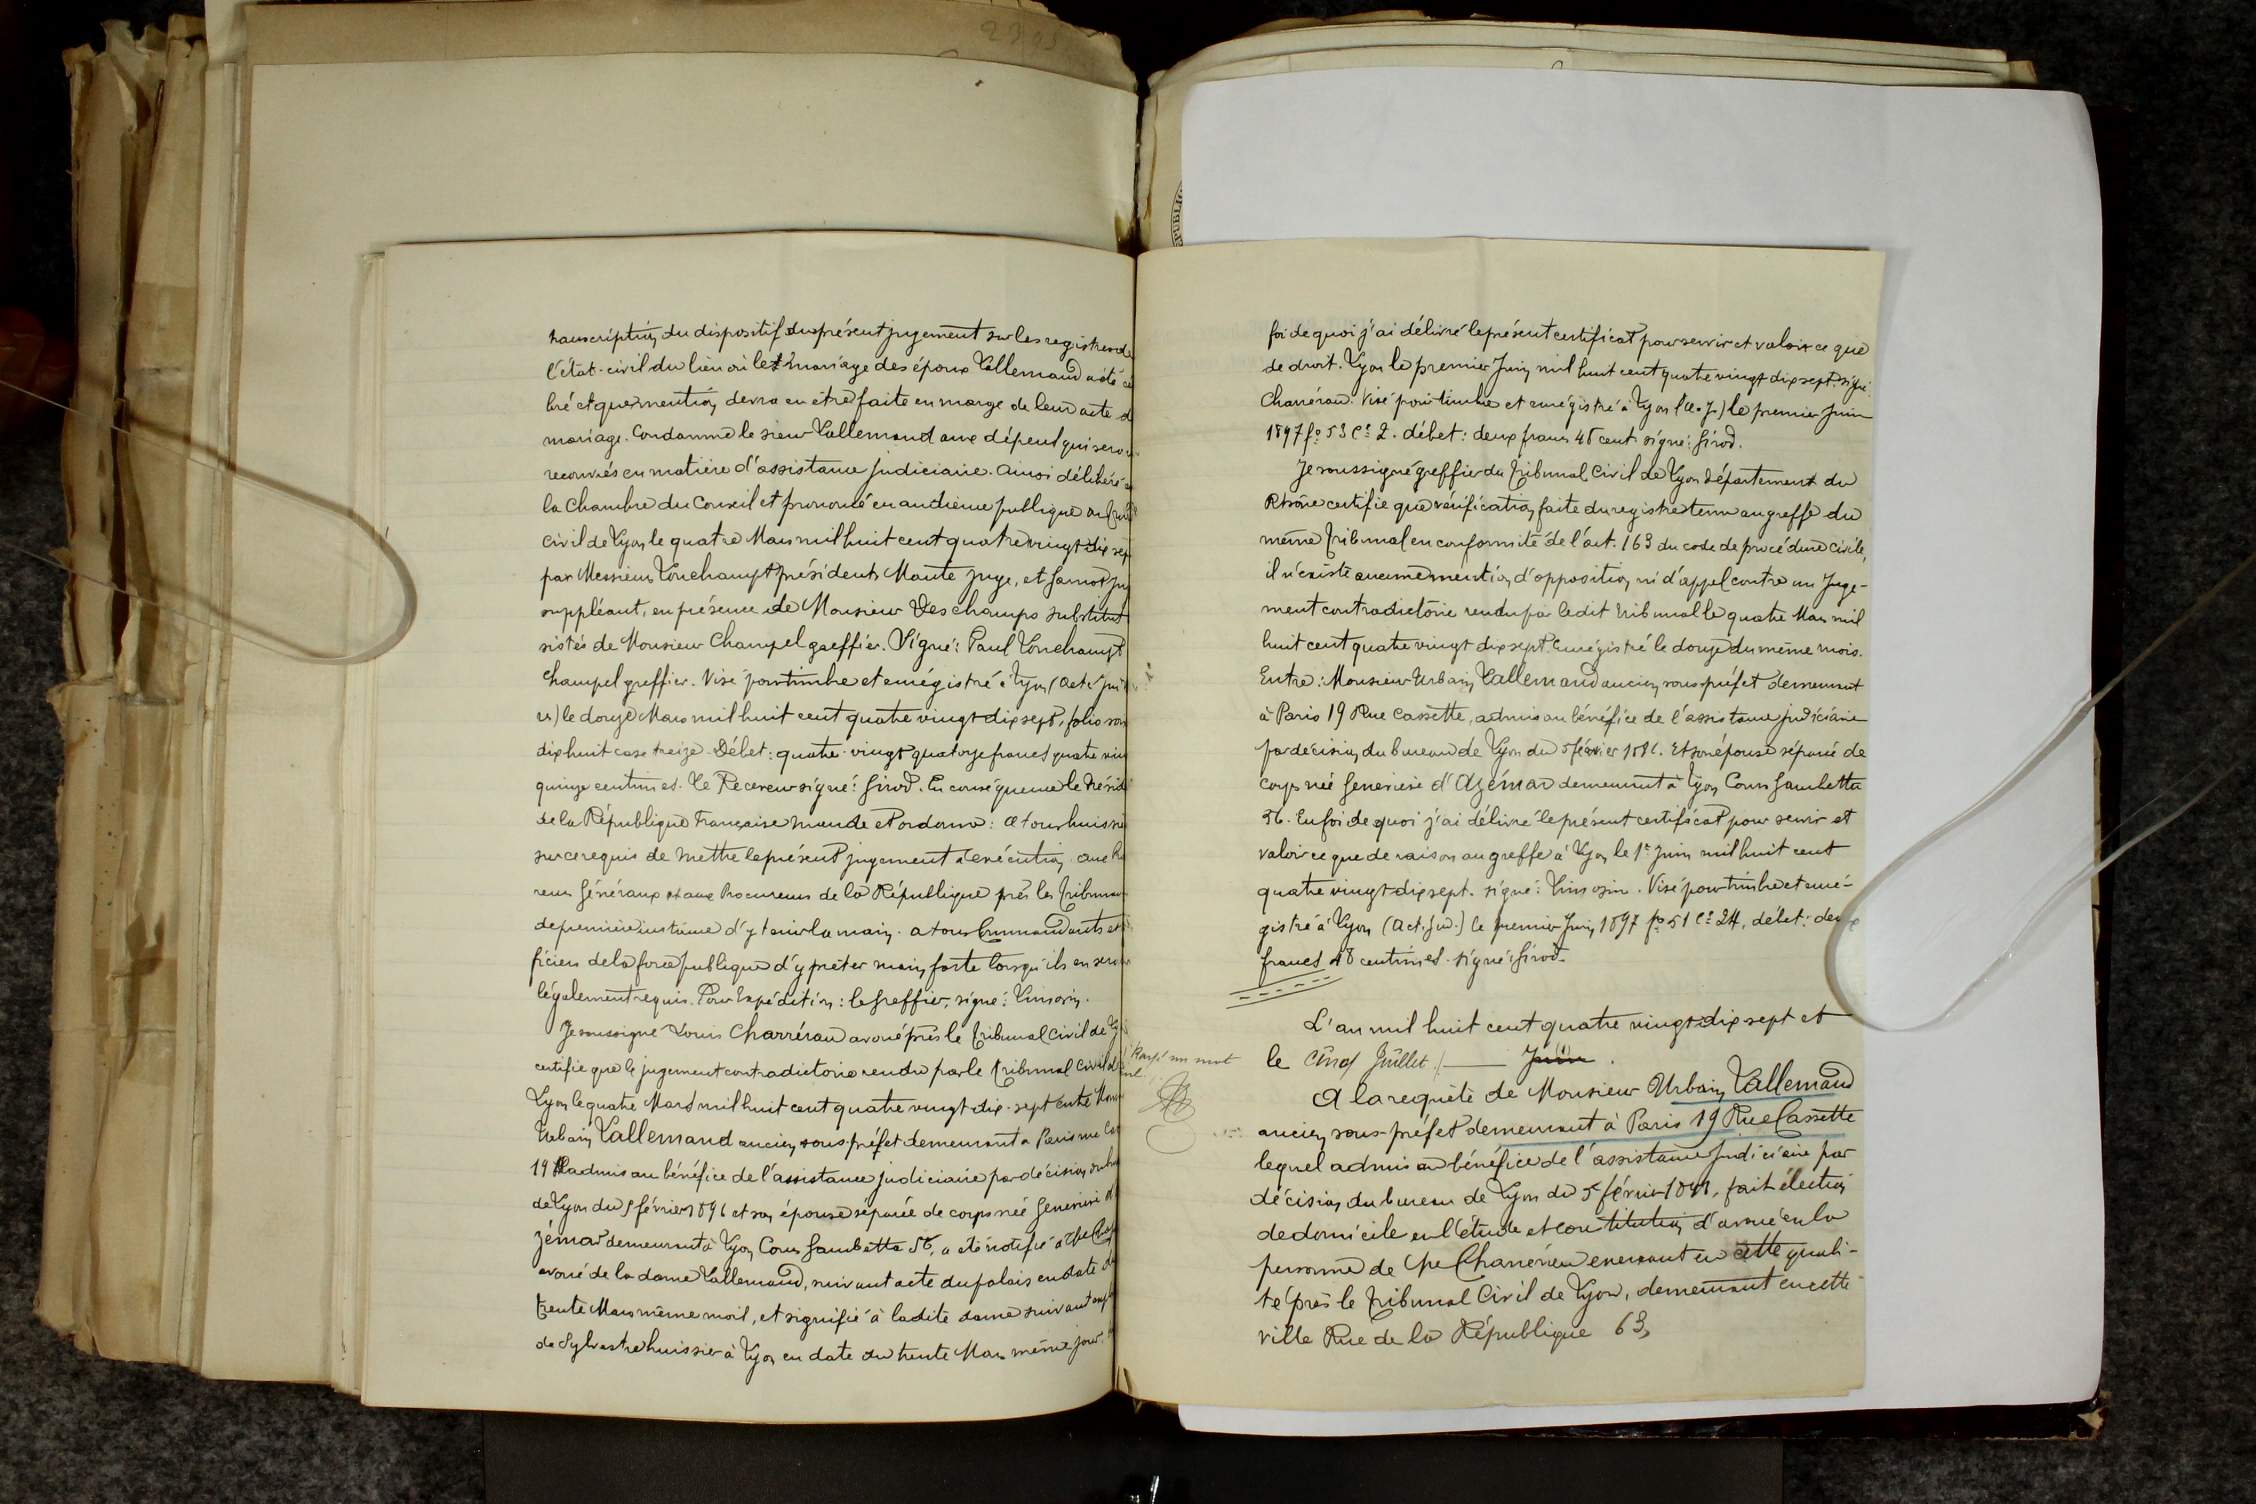 transcription du dispositif du présent jugement sur les registres de
l'état-civil du lieu où le mariage des époux Lallemand a été cé
bré et que mention devra en être faite en marge de leur acte d
mariage. Condamne le sieur Lallemand aux dépens qui sero
recouvrés en matière d'assistance judiciaire. Ainsi délibéré en
la Chambre du Conseil et prononcé en audience publique au
civil de Lyon le quatre Mars mil huit cent quatre vingt dix sep
par Messieurs Lonchampt président, Maute juge, et Jarnot ju
suppléant, en présence de Monsieur Deschamps substitut
sistés de Monsieur Champel greffier. Signé: Paul Lonchampt
Champel greffier. Visé pour timbre et enregistré à Lyon (act. jud
es) le douze Mars mil huit cent quatre vingt dix sept, folio
dix huit case treize. Débet: quatre-vingt quatorze francs quatre vin
quinze centimes. Le Receveur signé: Girod. En conséquence le Présid
de la République Française mande et ordonne: à tous huissie
sur ce requis de mettre le présent jugement à exécution. aux
reurs Généraux et aux Procureurs de la République près les Tribunau
de première instance d'y tenir la main. à tous Commandants et
ficiers de la force publique d'y prêter main forte lorsqu'ils en sero
légalement requis. Pour Expédition: le Greffier, signé: Limosin.
Je soussigné Louis Charréreau avoué près le Tribunal Civil de Ly
certifie que le jugement contradictoire rendu par le Tribunal Civil d
Lyon le quatre Mars mil huit cent quatre vingt dix-sept entre Mons
Urbain Lallemand ancien sous-préfet demeurant à Paris rue Cas
19 admis au bénéfice de l'assistance judiciaire par décision du bu
de Lyon du 5 février 1896 et son épouse séparée de corps née Geneviève d'
zémar demeurant à Lyon, Cours Gambetta 56, a été notifié à Me Char
avoué de la dame Lallemand, suivant acte du palais en date du
trente Mars même mois, et signifié à ladite dame suivant exp
de Sylvestre huissier à Lyon en date du trente Mars même jour.
Rayé un mot
nul.
foi de quoi j'ai délivré le présent certificat pour servir et valoir ce que
de droit. Lyon le premier Juin mil huit cent quatre vingt dix sept. signé:
Charréreau. Visé pour timbre et enregistré à Lyon (a. J.) le premier Juin
1897 fo 53 Ce 2. débet: deux francs 48 cent. signé: Girod.
Je soussigné greffier du Tribunal Civil de Lyon département du
Rhône certifie que vérification faite du registre tenu au greffe du
même Tribunal en conformité de l'art. 163 du code de procédure civile,
il n'existe aucune mention d'opposition ni d'appel contre un Juge-
ment contradictoire rendu par ledit Tribunal le quatre Mars mil
huit cent quatre vingt dix sept Enregistré le douze du même mois.
Entre: Monsieur Urbain Lallemand ancien sous-préfet demeurant
à Paris 19 Rue Cassette, admis au bénéfice de l'assistance judiciaire
par décision du bureau de Lyon du 5 février 1896. Et son épouse séparée de
corps née Geneviève d'Azémar demeurant à Lyon Cours Gambetta
56. En foi de quoi j'ai délivré le présent certificat pour servir et
valoir ce que de raison au greffe à Lyon le 1er Juin mil huit cent
quatre vingt dix sept. signé: Limosin. Visé pour timbre et enre-
gistré à Lyon (Act. Jud.) le premier Juin 1897 fo 51 Ce 24, débet: deux
francs 48 centimes. signé: Girod.
L'an mil huit cent quatre vingt dix sept et
le cinq Juillet Juin.
A la requête de Monsieur Urbain Lallemand
ancien sous-préfet demeurant à Paris 19 Rue Cassette
lequel admis au bénéfice de l'assistance judiciaire par
décision du bureau de Lyon du 5 février, fait élection
de domicile en l'étude et constitution d'avoué en la
personne de Me Charréreau exerçant en cette quali-
té près le Tribunal Civil de Lyon, demeurant en cette
ville Rue de la République 63,